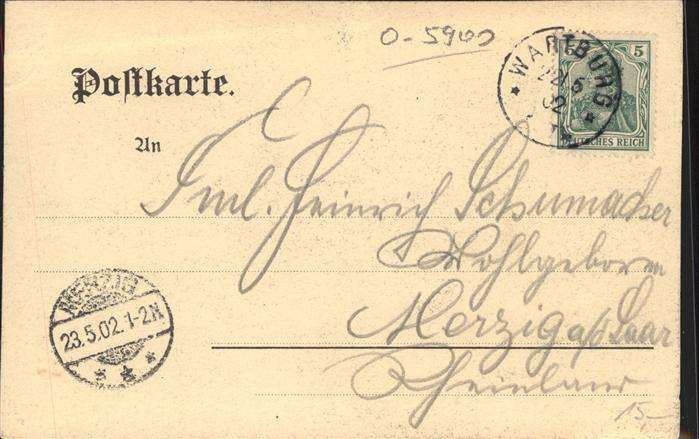 O-5900
WARTBURG
5
02
DEUTSCHES REICH
Postkarte.
An
Heinrich Schumacher
Wohlgeboren
MERZIG
23.5.02.1-2N
Merzig a/d Saar
Rheinland
15,-